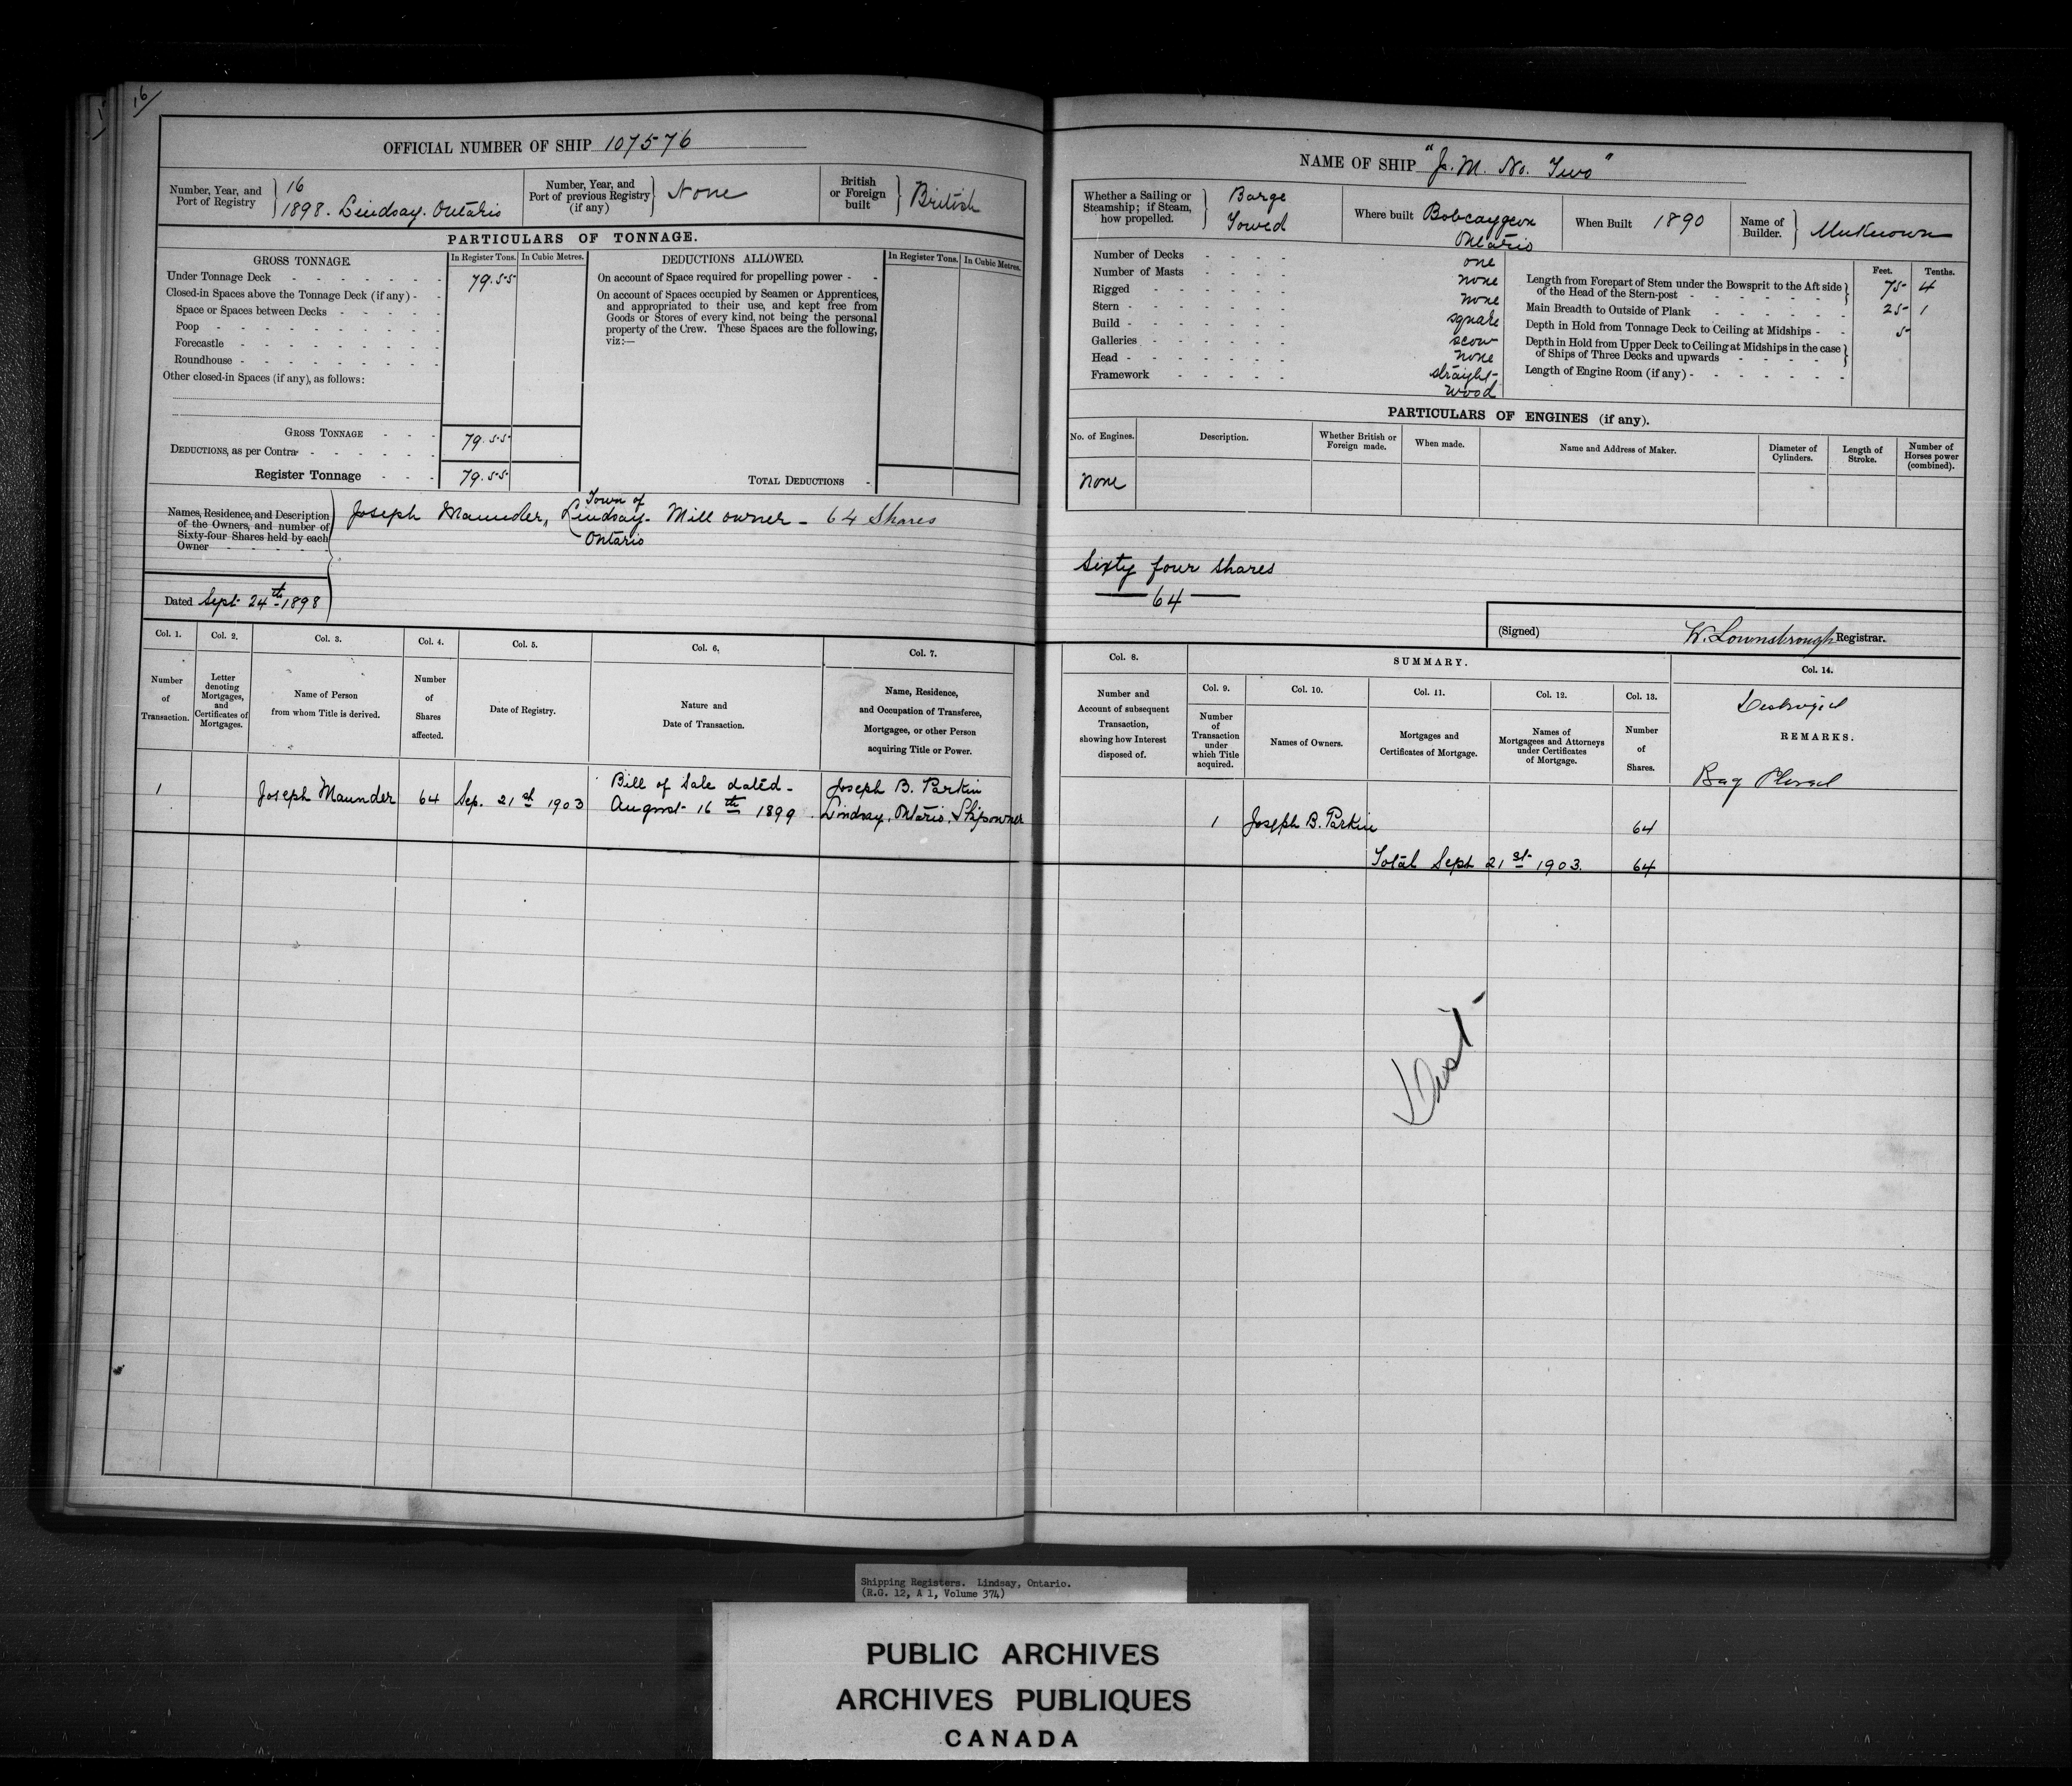 16
OFFICIAL NUMBER OF SHIP 107576
Number, Year, and Port of Registry } 16 1898. Lindsay. Ontario
Number, Year, and Port of previous Registry (if any) } None
British or Foreign built } British
PARTICULARS OF TONNAGE.
GROSS TONNAGE. In Register Tons. In Cubic Metres.
Under Tonnage Deck - 79.55
Closed-in Spaces above the Tonnage Deck (if any) -
Space or Spaces between Decks -
Poop -
Forecastle -
Roundhouse -
Other closed-in Spaces (if any), as follows:
GROSS TONNAGE - 79.55
DEDUCTIONS, as per Contra -
Register Tonnage - 79.55
DEDUCTIONS ALLOWED. In Register Tons. In Cubic Metres.
On account of Space required for propelling power -
On account of Spaces occupied by Seamen or Apprentices,
and appropriated to their use, and kept free from
Goods or Stores of every kind, not being the personal
property of the Crew. These Spaces are the following,
viz:—
TOTAL DEDUCTIONS -
Names, Residence, and Description
of the Owners, and number of
Sixty-four Shares held by each
Owner
Joseph Maunder, Town of Lindsay Ontario - Mill owner - 64 Shares
Dated Sept 24th 1898
Col. 1. Col. 2. Col. 3. Col. 4. Col. 5. Col. 6. Col. 7.
Number of Transaction.
Letter denoting Mortgages, and Certificates of Mortgages.
Name of Person from whom Title is derived.
Number of Shares affected.
Date of Registry.
Nature and Date of Transaction.
Name, Residence, and Occupation of Transferee, Mortgagee, or other Person acquiring Title or Power.
1 Joseph Maunder 64 Sep. 21st 1903 Bill of Sale dated - August 16th 1899. Joseph B. Parkin Lindsay, Ontario. Shipowner
NAME OF SHIP "J. M. No. Two"
Whether a Sailing or Steamship; if Steam, how propelled. } Barge Towed
Where built Bobcaygeon Ontario
When Built 1890
Name of Builder. } Unknown
Number of Decks - one
Number of Masts - none
Rigged - none
Stern - square
Build - scow
Galleries - none
Head - straight
Framework - wood
Feet. Tenths.
Length from Forepart of Stem under the Bowsprit to the Aft side of the Head of the Stern-post - 75 4
Main Breadth to Outside of Plank - 25 1
Depth in Hold from Tonnage Deck to Ceiling at Midships - 5
Depth in Hold from Upper Deck to Ceiling at Midships in the case of Ships of Three Decks and upwards -
Length of Engine Room (if any) -
PARTICULARS OF ENGINES (if any).
No. of Engines. Description. Whether British or Foreign made. When made. Name and Address of Maker. Diameter of Cylinders. Length of Stroke. Number of Horses power (combined).
None
Sixty four shares
64
(Signed) W. Lownsbrough Registrar.
Col. 8. SUMMARY. Col. 14.
Col. 9. Col. 10. Col. 11. Col. 12. Col. 13.
Number and Account of subsequent Transaction, showing how Interest disposed of.
Number of Transaction under which Title acquired.
Names of Owners.
Mortgages and Certificates of Mortgage.
Names of Mortgagees and Attorneys under Certificates of Mortgage.
Number of Shares.
Destroyed
REMARKS.
Closed
1 Joseph B. Parkin 64
Total Sept 21st 1903. 64
Shipping Registers. Lindsay, Ontario.
(R.G. 12, A 1, Volume 374)
PUBLIC ARCHIVES
ARCHIVES PUBLIQUES
CANADA